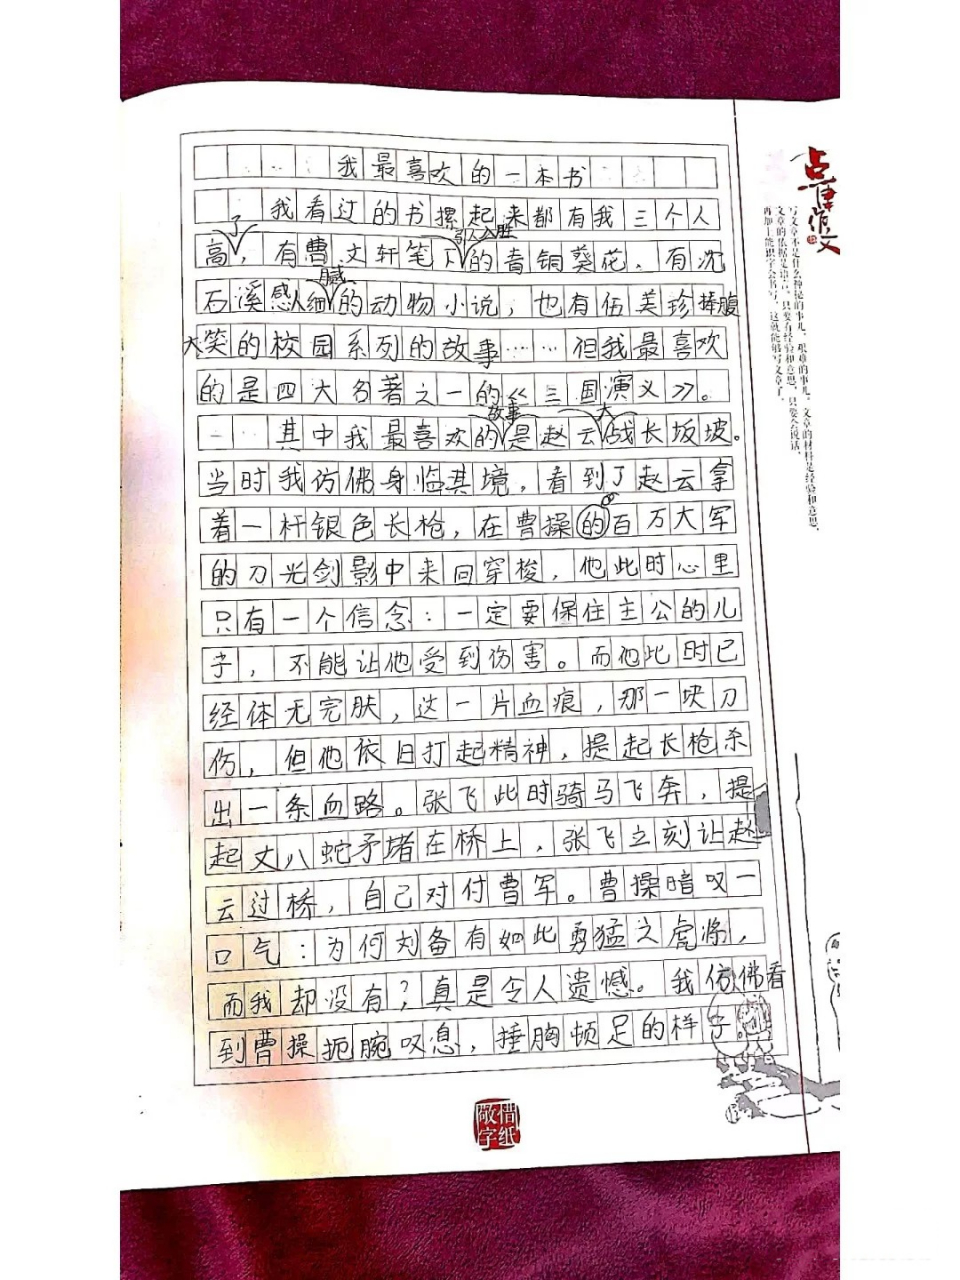 我最喜欢的一本书
我看过的书摞起来都有我三个人
了
引人入胜
高，有曹文轩笔下的青铜葵花，有沈
腻
石溪感人细的动物小说，也有伍美珍捧腹
大笑的校园系列的故事……但我最喜欢
的是四大名著之一的《三国演义》。
故事 大
其中我最喜欢的是赵云战长坂坡。
当时我仿佛身临其境，看到了赵云拿
着一杆银色长枪，在曹操的百万大军
的刀光剑影中来回穿梭，他此时心里
只有一个信念：一定要保住主公的儿
子，不能让他受到伤害。而他此时已
经体无完肤，这一片血痕，那一块刀
伤，但他依旧打起精神，提起长枪杀
出一条血路。张飞此时骑马飞奔，提
起丈八蛇矛堵在桥上，张飞立刻让赵
云过桥，自己对付曹军。曹操暗叹一
口气：为何刘备有如此勇猛之虎将，
而我却没有？真是令人遗憾。我仿佛看
到曹操扼腕叹息，捶胸顿足的样子。
写文章不是什么神秘的事儿，艰难的事儿。文章的材料是经验和意思，
文章的依据是语言。只要有经验和意思，只要会说话，
再加上能识字会书写，这就能够写文章了。
敬惜字纸